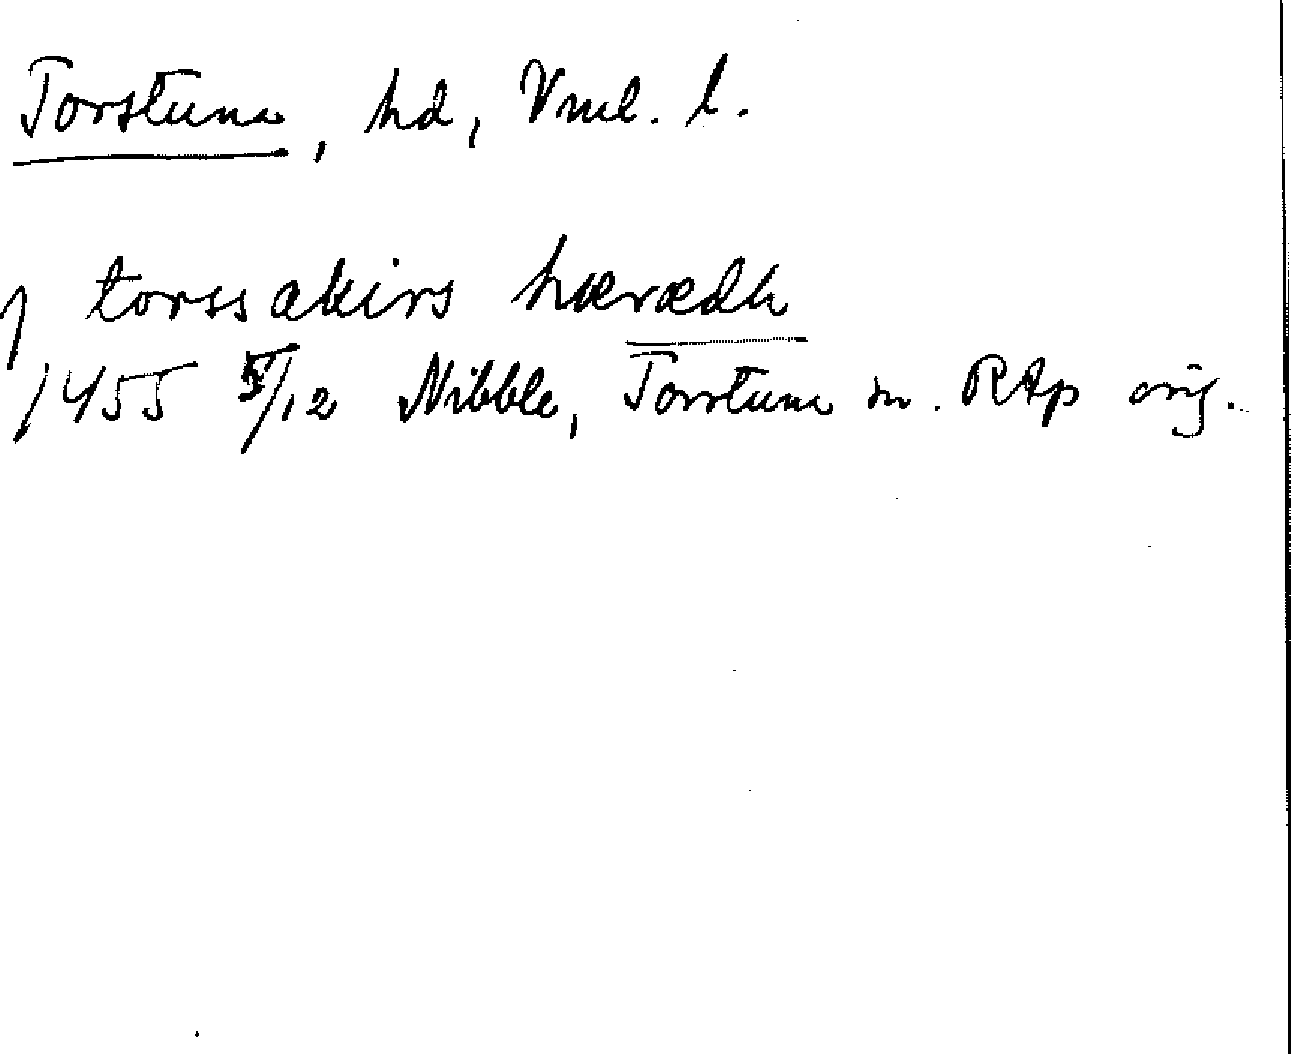 Torstuna, hd, Vml. l.
j torssakirs hæradh
1455 5/12 Nibble, Torstuna sn. RAp orig.